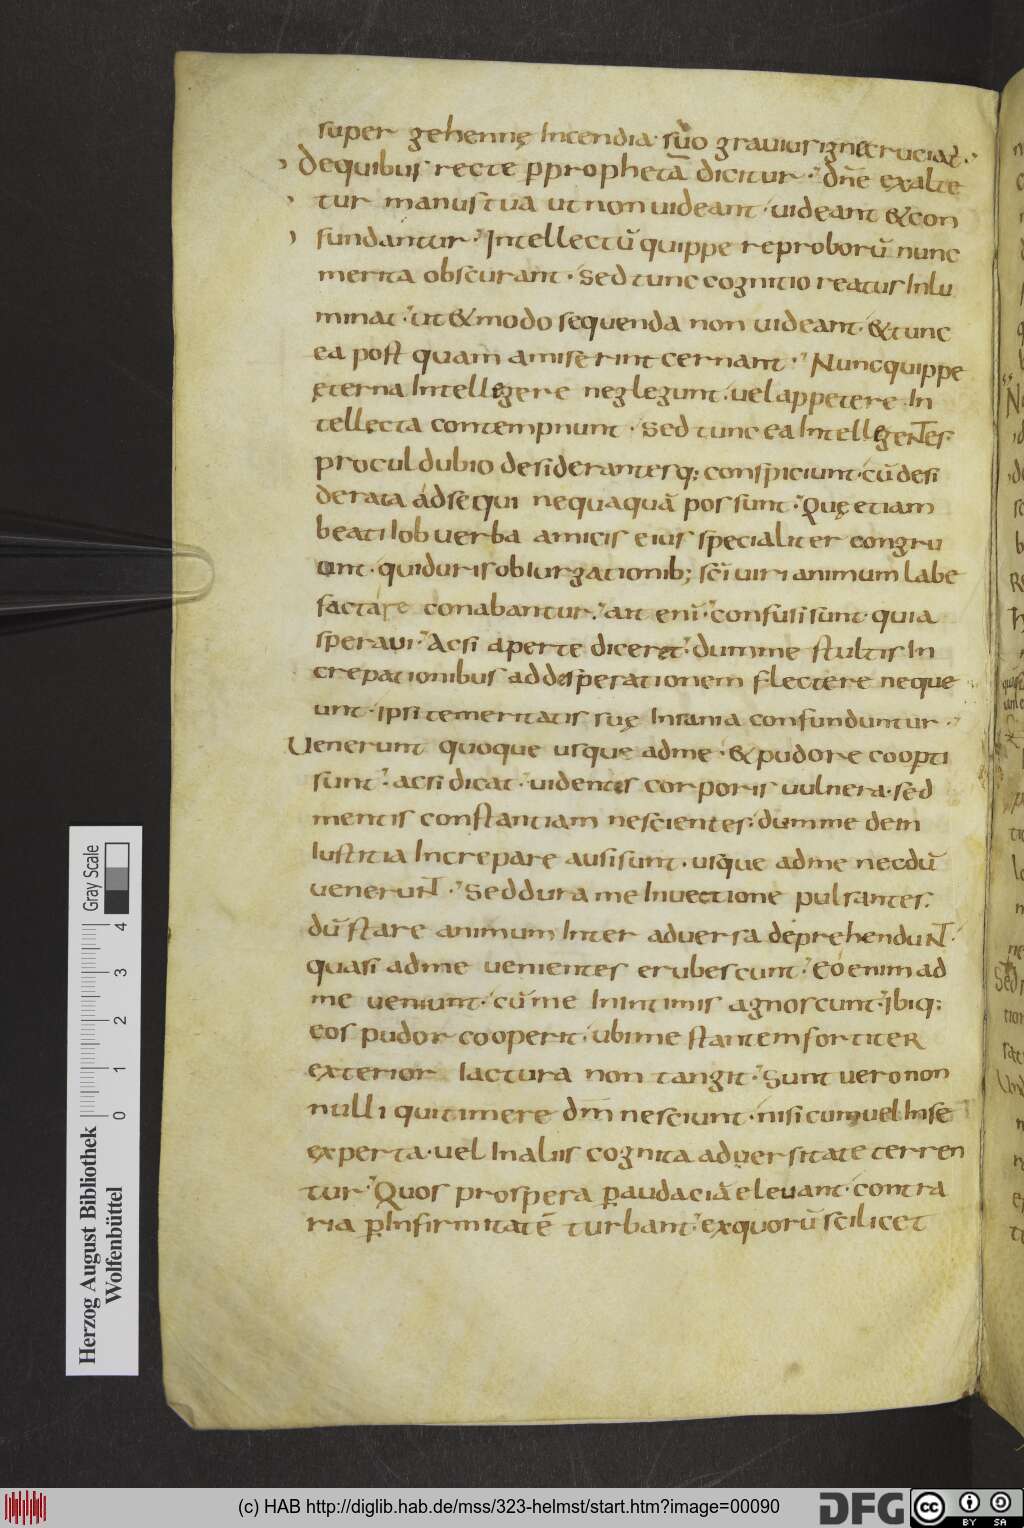 super gehennę Incendia· suo grauius igne cruciat̄·
Dequibus recte ꝑprophetā dicitur· dn̄e exalte
tur manus tua ut non uideant· uideant &con
fundantur· Intellectū quippe reproborū nunc
merita obscurant· Sed tunc cognitio reatus Inlu
minat· ut &modo sequenda non uideant· &tunc
ea post quam amiserint cernant· Nunc quippe
ęterna Intellegere neglegunt· uel appetere In
tellecta contempnunt· Sed tunc ea Intellegentes·
procul dubio desiderantesq; conspiciunt· cū desi
derata adsequi nequaquā possunt· Quę etiam
beati Iob uerba amicis eius specialiter congru
unt· qui duris obIurgationib; sc̄i uiri animum labe
factare conabantur· ait enī· confusi sunt· quia
speraui· Ac si aperte diceret· dum me stultis In
crepationibus ad desperationem flectere neque
unt· ipsi temeritatis suę Insania confunduntur·
Uenerunt quoque usque ad me· & pudore coopti
sunt· ac si dicat· uidentes corporis uulnera· sed
mentis constantiam nescientes· dum me de in
Iustitia Increpare ausi sunt· usque ad me necdū
uenerunt· Sed dura me Inuectione pulsantes·
dū stare animum Inter aduersa deprehendunt·
quasi ad me uenientes erubescunt· Eo enim ad
me ueniunt· cū me In intimis agnoscunt· Ibiq;
eos pudor cooperit· ubi me stantem fortiter
exterior Iactura non tangit· Sunt uero non
nulli qui timere dm̄ nesciunt· nisi cum uel In se
experta· uel In aliis cognita aduersitate terren
tur· Quos prospera ꝑ audaciā eleuant· contra
ria ꝑ Infirmitatē turbant· ex quorū scilicet
Gray Scale
0 1 2 3 4
Herzog August Bibliothek
Wolfenbüttel
(c) HAB http://diglib.hab.de/mss/323-helmst/start.htm?image=00090
DFG
cc BY SA